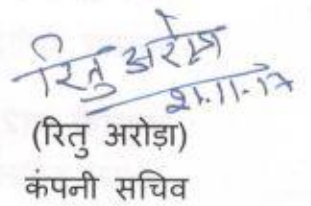 रितु अरोड़ा
21.11.17
(रितु अरोड़ा)
कंपनी सचिव